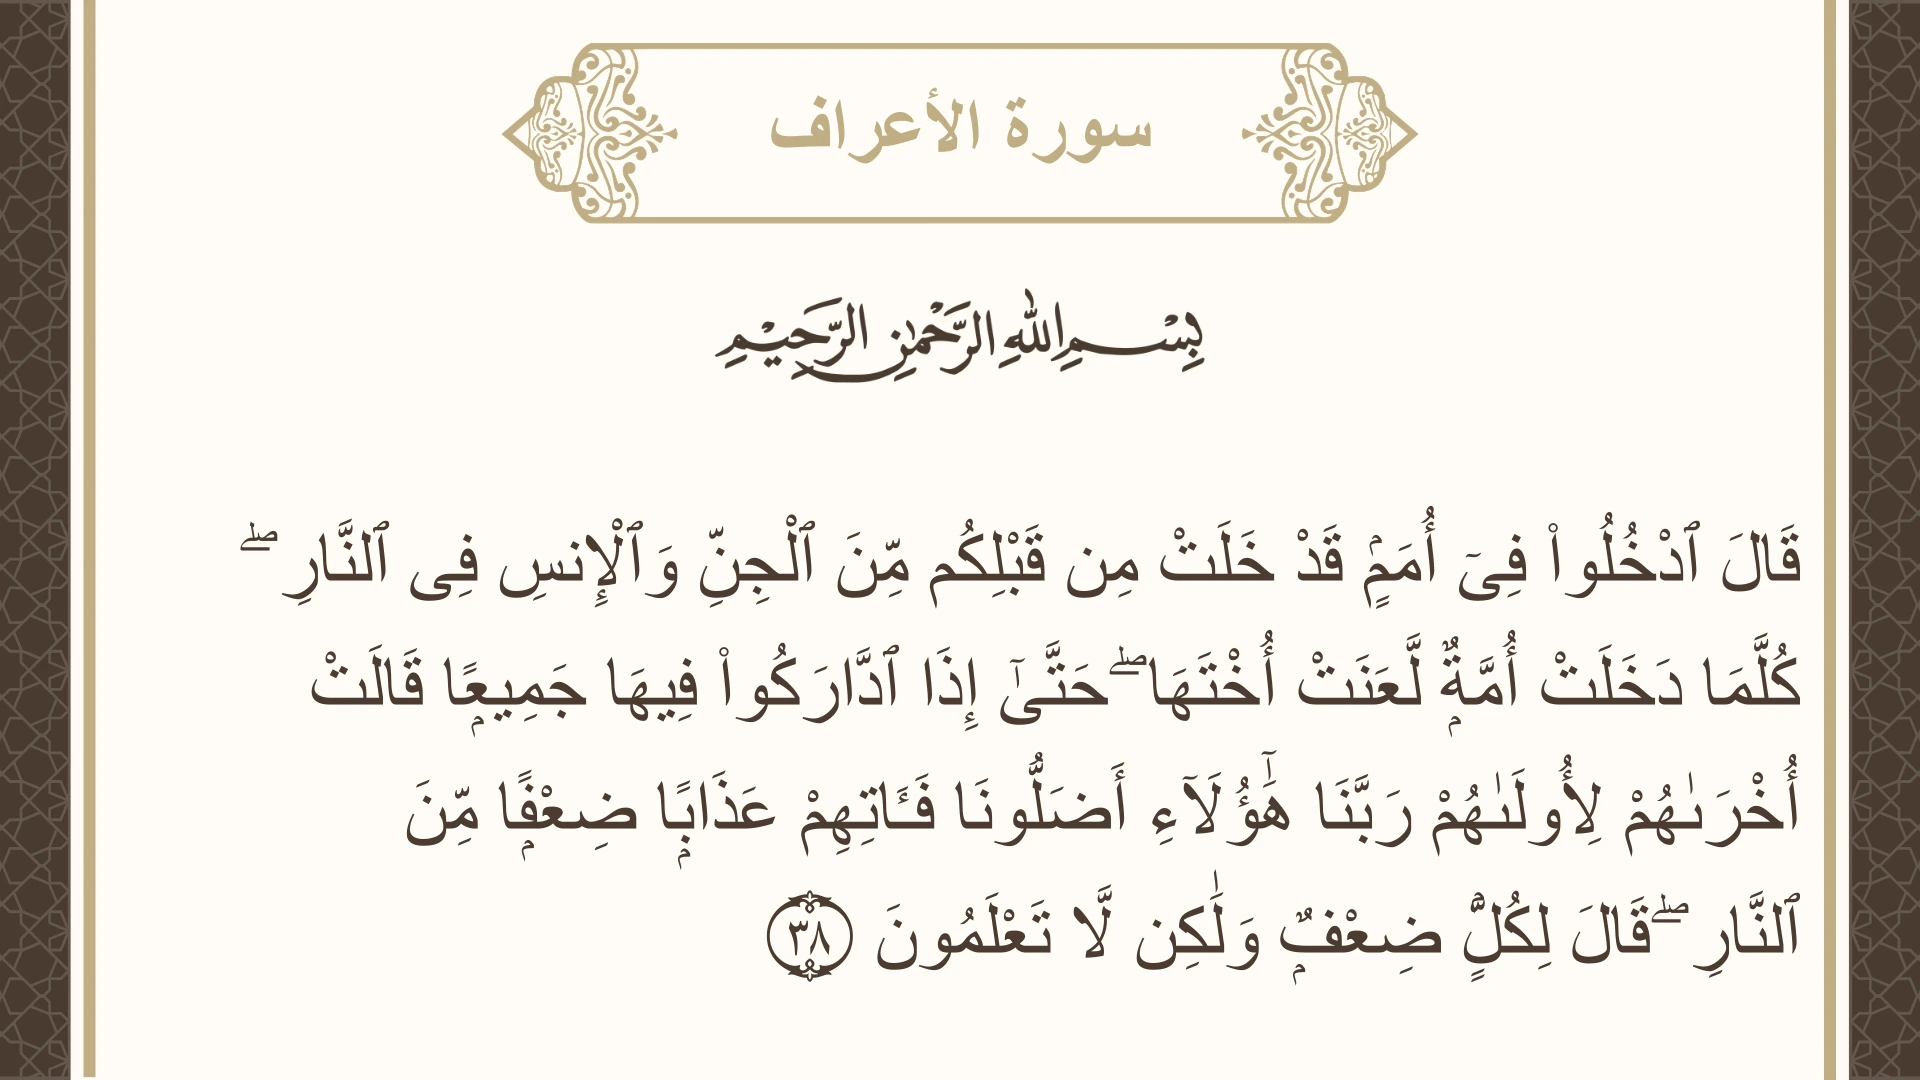 سورة الأعراف
بِسْمِ اللهِ الرَّحْمٰنِ الرَّحِيْمِ
قَالَ ٱدْخُلُوا۟ فِىٓ أُمَمٍۢ قَدْ خَلَتْ مِن قَبْلِكُم مِّنَ ٱلْجِنِّ وَٱلْإِنسِ فِى ٱلنَّارِ ۖ
كُلَّمَا دَخَلَتْ أُمَّةٌۭ لَّعَنَتْ أُخْتَهَا ۖ حَتَّىٰٓ إِذَا ٱدَّارَكُوا۟ فِيهَا جَمِيعًۭا قَالَتْ
أُخْرَىٰهُمْ لِأُولَىٰهُمْ رَبَّنَا هَٰٓؤُلَآءِ أَضَلُّونَا فَـَٔاتِهِمْ عَذَابًۭا ضِعْفًۭا مِّنَ
ٱلنَّارِ ۖ قَالَ لِكُلٍّۢ ضِعْفٌۭ وَلَٰكِن لَّا تَعْلَمُونَ ٣٨